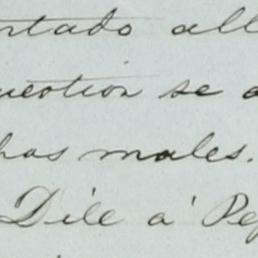 rtado all
uestion se a
has males.
Dile á Pep